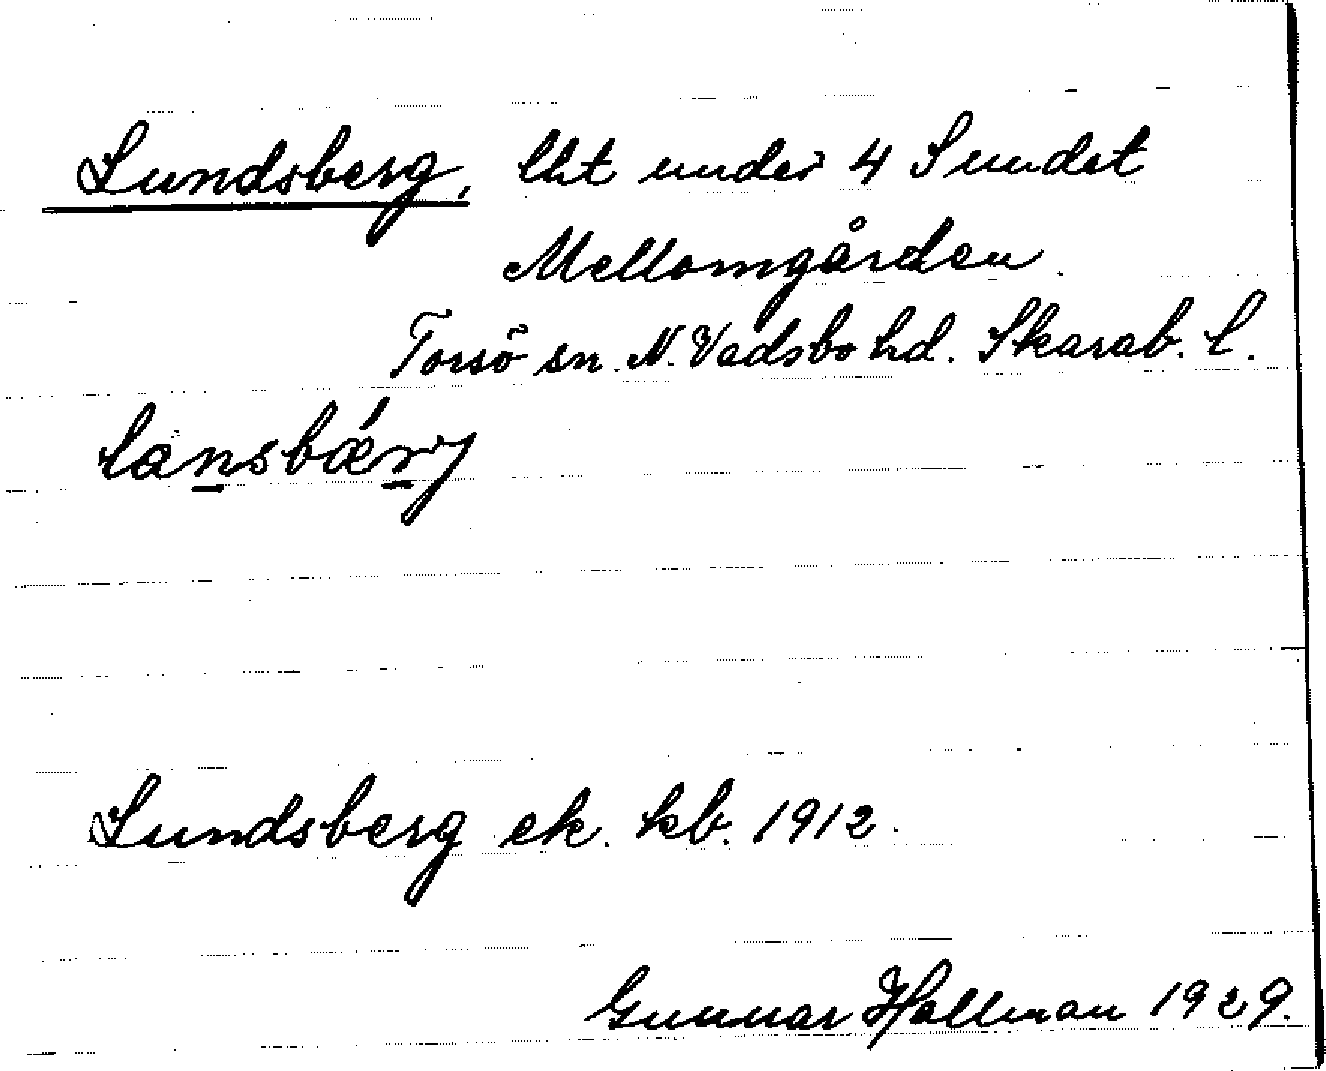 Lundsberg, lht under 4 Sundet
Mellomgården.
Torsö sn. N. Vadsbo hd. Skarab. l.
Lundsberg ek. kb. 1912.
Gunnar Hallman 1929.